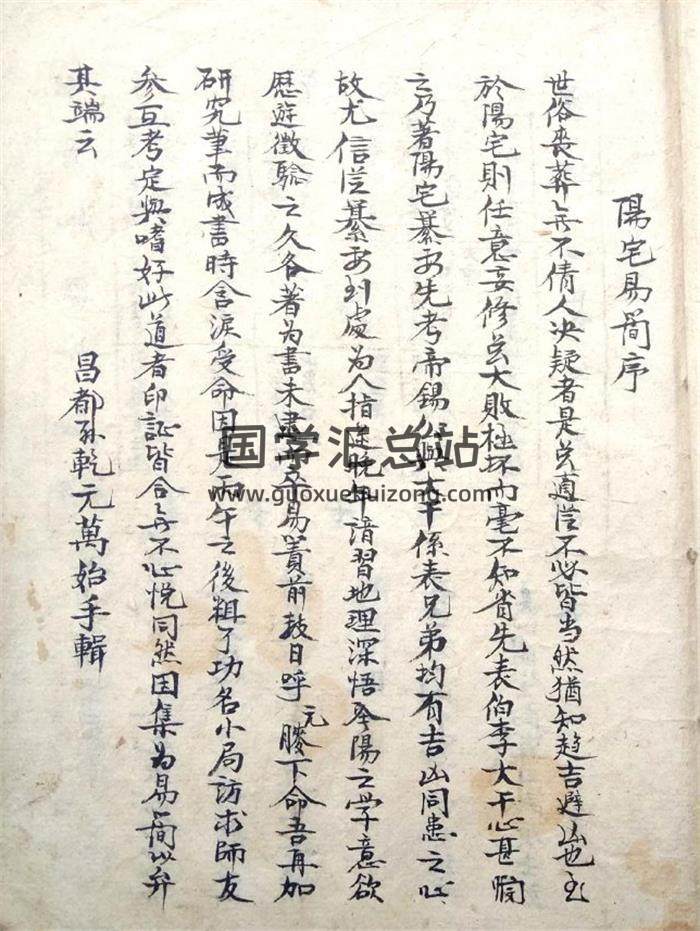 陽宅易簡序
世俗喪葬無不倩人决疑者是以適從不必皆当然猶知趋吉避凶也至
於陽宅則任意妄修以大敗极坏而毫不知省先表伯李大干心甚憫
之乃著陽宅纂要先考帝錫公與大干係表兄弟均有吉凶同患之心
故尤信從纂要到處為人指迷晚年請習地理深悟陰陽之学意欲
歷遊徵驗之久各著為書未逮而卒易簀前数日呼元膝下命吾再加
研究筆而成書時含淚受命因是丙午之後粗了功名小局訪求師友
参互考定與嗜好此道者印証皆合無不心悦同然因集為易簡以弁
其端云
昌都孫乾元萬始手輯
国学汇总站
www.guoxuehuizong.com